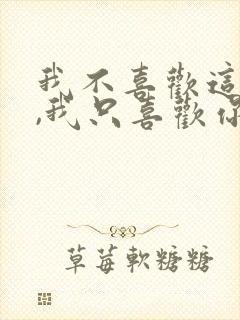 我不喜歡這
,我只喜歡你
草莓軟糖糖